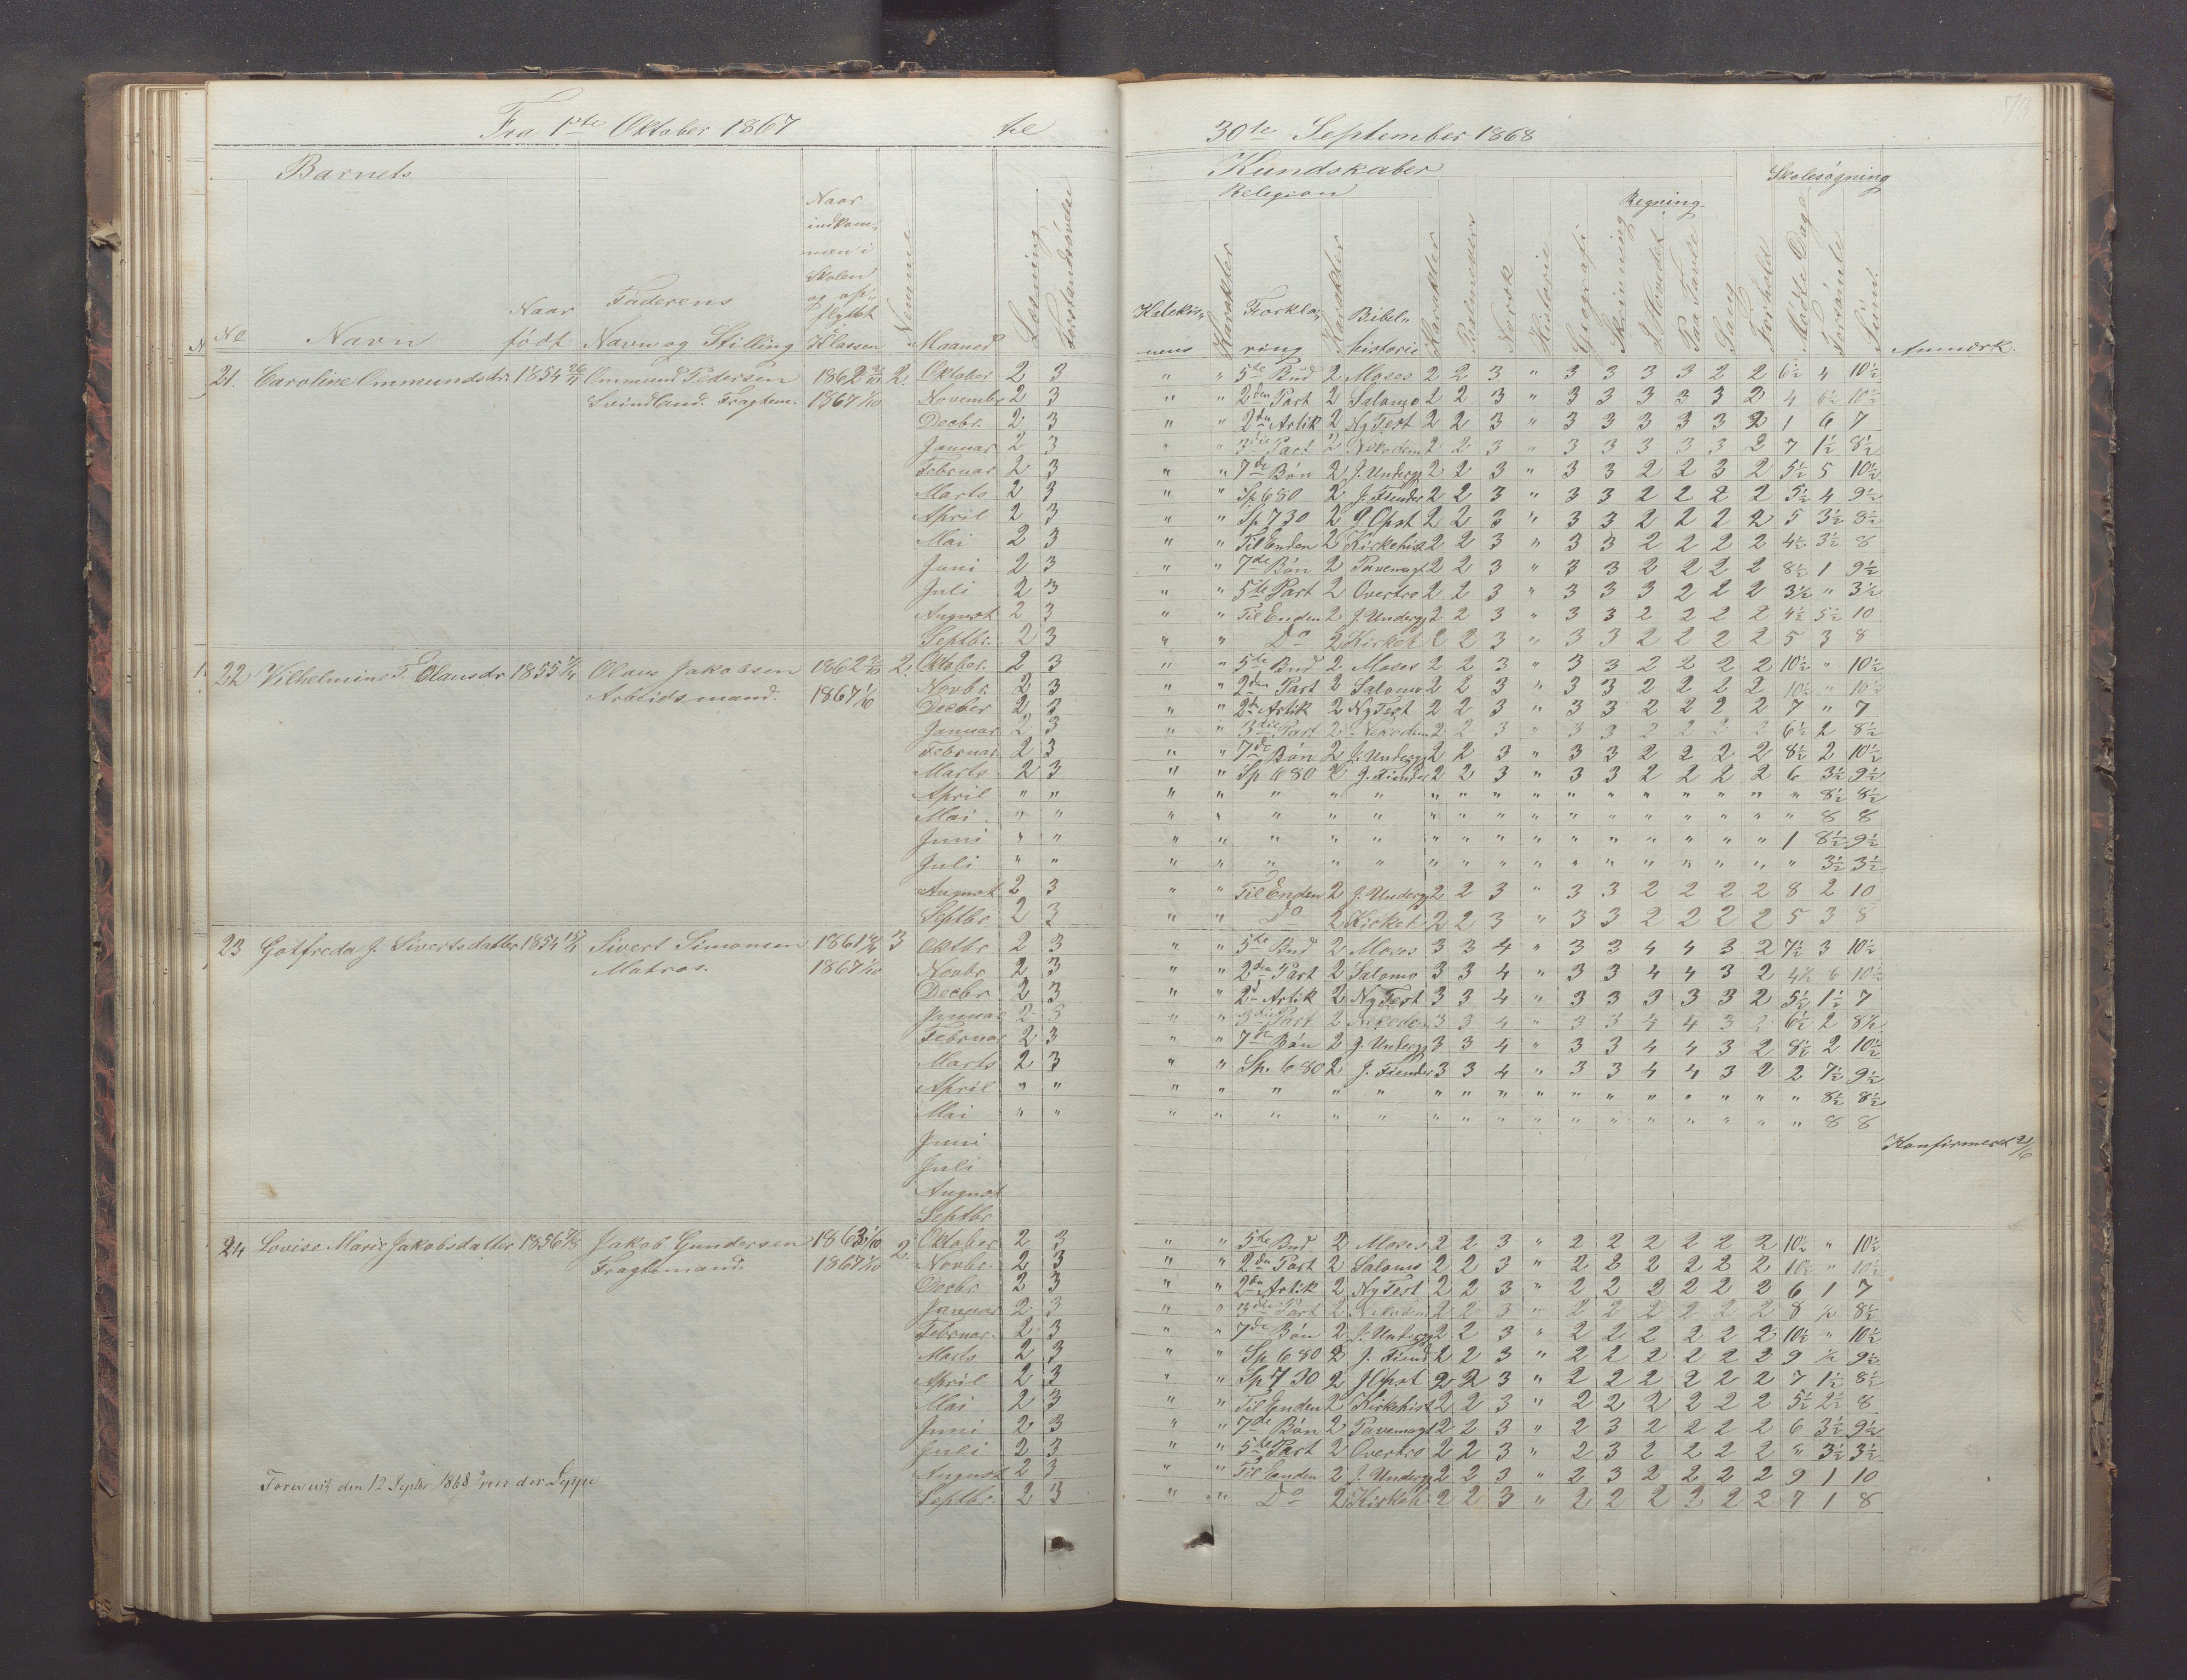 Fra 1ste Oktober 1867 til 30te September 1868
Barnets Kundskaber Skolesøgning
Religion Regning
No Navn Naar født Faderens Navn og Stilling Naar indkom„ men i Skolen og op„ flyttet i Klassen Nemme Maaned Læsning Forstandsøvelse
Katekis„ mus Karakter Forkla„ ring Karakter Bibel„ historie Karakter Psalmevers Norsk Historie Geografi Skrivning I Hovedet Paa Tavle Sang Forhold Mødte Dage Forsømte Sum Anmærk.
21. Caroline Ommundsdr. 1854 26/11 Ommund Pedersen 1862 2. Oktober 2 3 " " 5te Bud 2 Moses 2 2 3 " 3 3 3 3 2 2 6½ 4 10½
Svindland. Fragtem. 1867 1/10 Novembr 2 3 " " 2den Part 2 Salomo 2 2 3 " 3 3 3 3 3 2 4 6½ 10½
Decbr. 2 3 " " 2den Artik 2 Ny Test 2 2 3 " 3 3 3 3 3 2 1 6 7
Januar 2 3 " " 3die Part 2 Nekodem 2 2 3 " 3 3 3 3 3 2 7 1½ 8½
Februar 2 3 " " 7de Bøn 2 J. Underg 2 2 3 " 3 3 2 2 3 2 5½ 5 10½
Marts 2 3 " " Sp 680 2 J. Fiender 2 2 3 " 3 3 2 2 2 2 5½ 4 9½
April 2 3 " " Sp 730 2 J Opst 2 2 3 " 3 3 2 2 2 2 5 3½ 8½
Mai 2 3 " " Til Enden 2 Kirkehist 2 2 3 " 3 3 2 2 2 2 4½ 3½ 8
Juni 2 3 " " 7de Bøn 2 Pavemagt 2 2 3 " 3 3 2 2 2 2 8½ 1 9½
Juli 2 3 " " 5te Part 2 Overtro 2 2 3 " 3 3 3 2 2 2 3½ " 3½
August 2 3 " " Til Enden 2 J. Underg 2 2 3 " 3 3 2 2 2 2 4½ 5½ 10
Septbr. 2 3 " " Do 2 Kirkeh 2 2 3 " 3 3 2 2 2 2 5 3 8
22 Vilhelmine T. Olausdr 1855 Olaus Jakobsen 1862 2. Oktober. 2 3 " " 5te Bud 2 Moses 2 2 3 " 3 3 2 2 2 2 10½ " 10½
Arbeidsmand. 1867 1/10 Novbr. 2 3 " " 2den Part 2 Salomo 2 2 3 " 3 3 2 2 2 2 10½ " 10½
Decber 2 3 " " 2de Artik 2 Ny Test 2 2 3 " 3 3 2 2 2 2 7 " 7
Januar 2 3 " " 3die Part 2 Nekodem 2 2 3 " 3 3 2 2 2 2 6½ 2 8½
Februar 2 3 " " 7de Bøn 2 J. Underg 2 2 3 " 3 3 2 2 2 2 8½ 2 10½
Marts 2 3 " " Sp 680 2 J. Fiender 2 2 3 " 3 3 2 2 2 2 6 3½ 9½
April " " " " " " " " " " " " " " " " " " " 8½ 8½
Mai " " " " " " " " " " " " " " " " " " " 8 8
Juni " " " " " " " " " " " " " " " " " " 1 8½ 9½
Juli " " " " " " " " " " " " " " " " " " " 3½ 3½
August 2 3 " " Til Enden 2 J. Underg 2 2 3 " 3 3 2 2 2 2 8 2 10
Septbr 2 3 " " Do 2 Kirkeh 2 2 3 " 3 3 2 2 2 2 5 3 8
23 Gotfreda J. Sivertsdatter 1854 Sivert Simonsen 1861 3 Oktbr 2 3 " " 5te Bud 2 Moses 3 3 4 " 3 3 4 4 3 2 7½ 3 10½
Matros. 1867 1/10 Novbr 2 3 " " 2den Part 2 Salomo 3 3 4 " 3 3 4 4 3 2 4½ 6 10½
Decbr 2 3 " " 2d Artik 2 Ny Test 3 3 4 " 3 3 3 3 3 2 5½ 1½ 7
Januar 2 3 " " 3die Part 2 Nekodem 3 3 4 " 3 3 4 4 3 2 6½ 2 8½
Februar 2 3 " " 7de Bøn 2 J. Underg 3 3 4 " 3 3 4 4 3 2 8½ 2 10½
Marts 2 3 " " Sp. 680 2 J. Fiender 3 3 4 " 3 3 4 4 3 2 2 7½ 9½
April " " " " " " " " " " " " " " " " " " " 8½ 8½
Mai " " " " " " " " " " " " " " " " " " " 8 8
Juni Konfirmert 21/6
Juli
August
Septbr
24 Lovise Marie Jakobsdatter 1856 Jakob Gundersen 1863 1/10 2. Oktober 2 3 " " 5te Bud 2 Moses 2 2 3 " 2 2 2 2 2 2 10½ " 10½
Fragtemand. 1867 1/10 Novbr. 2 3 " " 2den Part 2 Salomo 2 2 3 " 2 2 2 2 2 2 10½ " 10½
Decbr 2 3 " " 2den Artik 2 Ny Test 2 2 3 " 2 2 2 2 2 2 6 1 7
Januar 2 3 " " 3die Part 2 Nekodem 2 2 3 " 2 2 2 2 2 2 8 ½ 8½
Februar. 2 3 " " 7de Bøn 2 J. Underg 2 2 3 " 2 2 2 2 2 2 10½ " 10½
Marts 2 3 " " Sp 680 2 J. Fiend 2 2 3 " 2 2 2 2 2 2 9 ½ 9½
April 2 3 " " Sp 730 2 J Opst 2 2 3 " 2 2 2 2 2 2 7 1½ 8½
Mai 2 3 " " Til Enden 2 Kirkehist 2 2 3 " 2 2 2 2 2 2 5½ 2½ 8
Juni 2 3 " " 7de Bøn 2 Pavemagt 2 2 3 " 2 3 2 2 2 2 6 3½ 9½
Juli 2 3 " " 5te Part 2 Overtro 2 2 3 " 2 3 2 2 2 2 " 3½ 3½
August 2 3 " " Til Enden 2 J. Underg 2 2 3 " 2 3 2 2 2 2 9 1 10
Forevist den 12 Septbr 1868 Septbr. 2 3 " " Do 2 Kirkeh 2 2 3 " 2 2 2 2 2 2 7 1 8